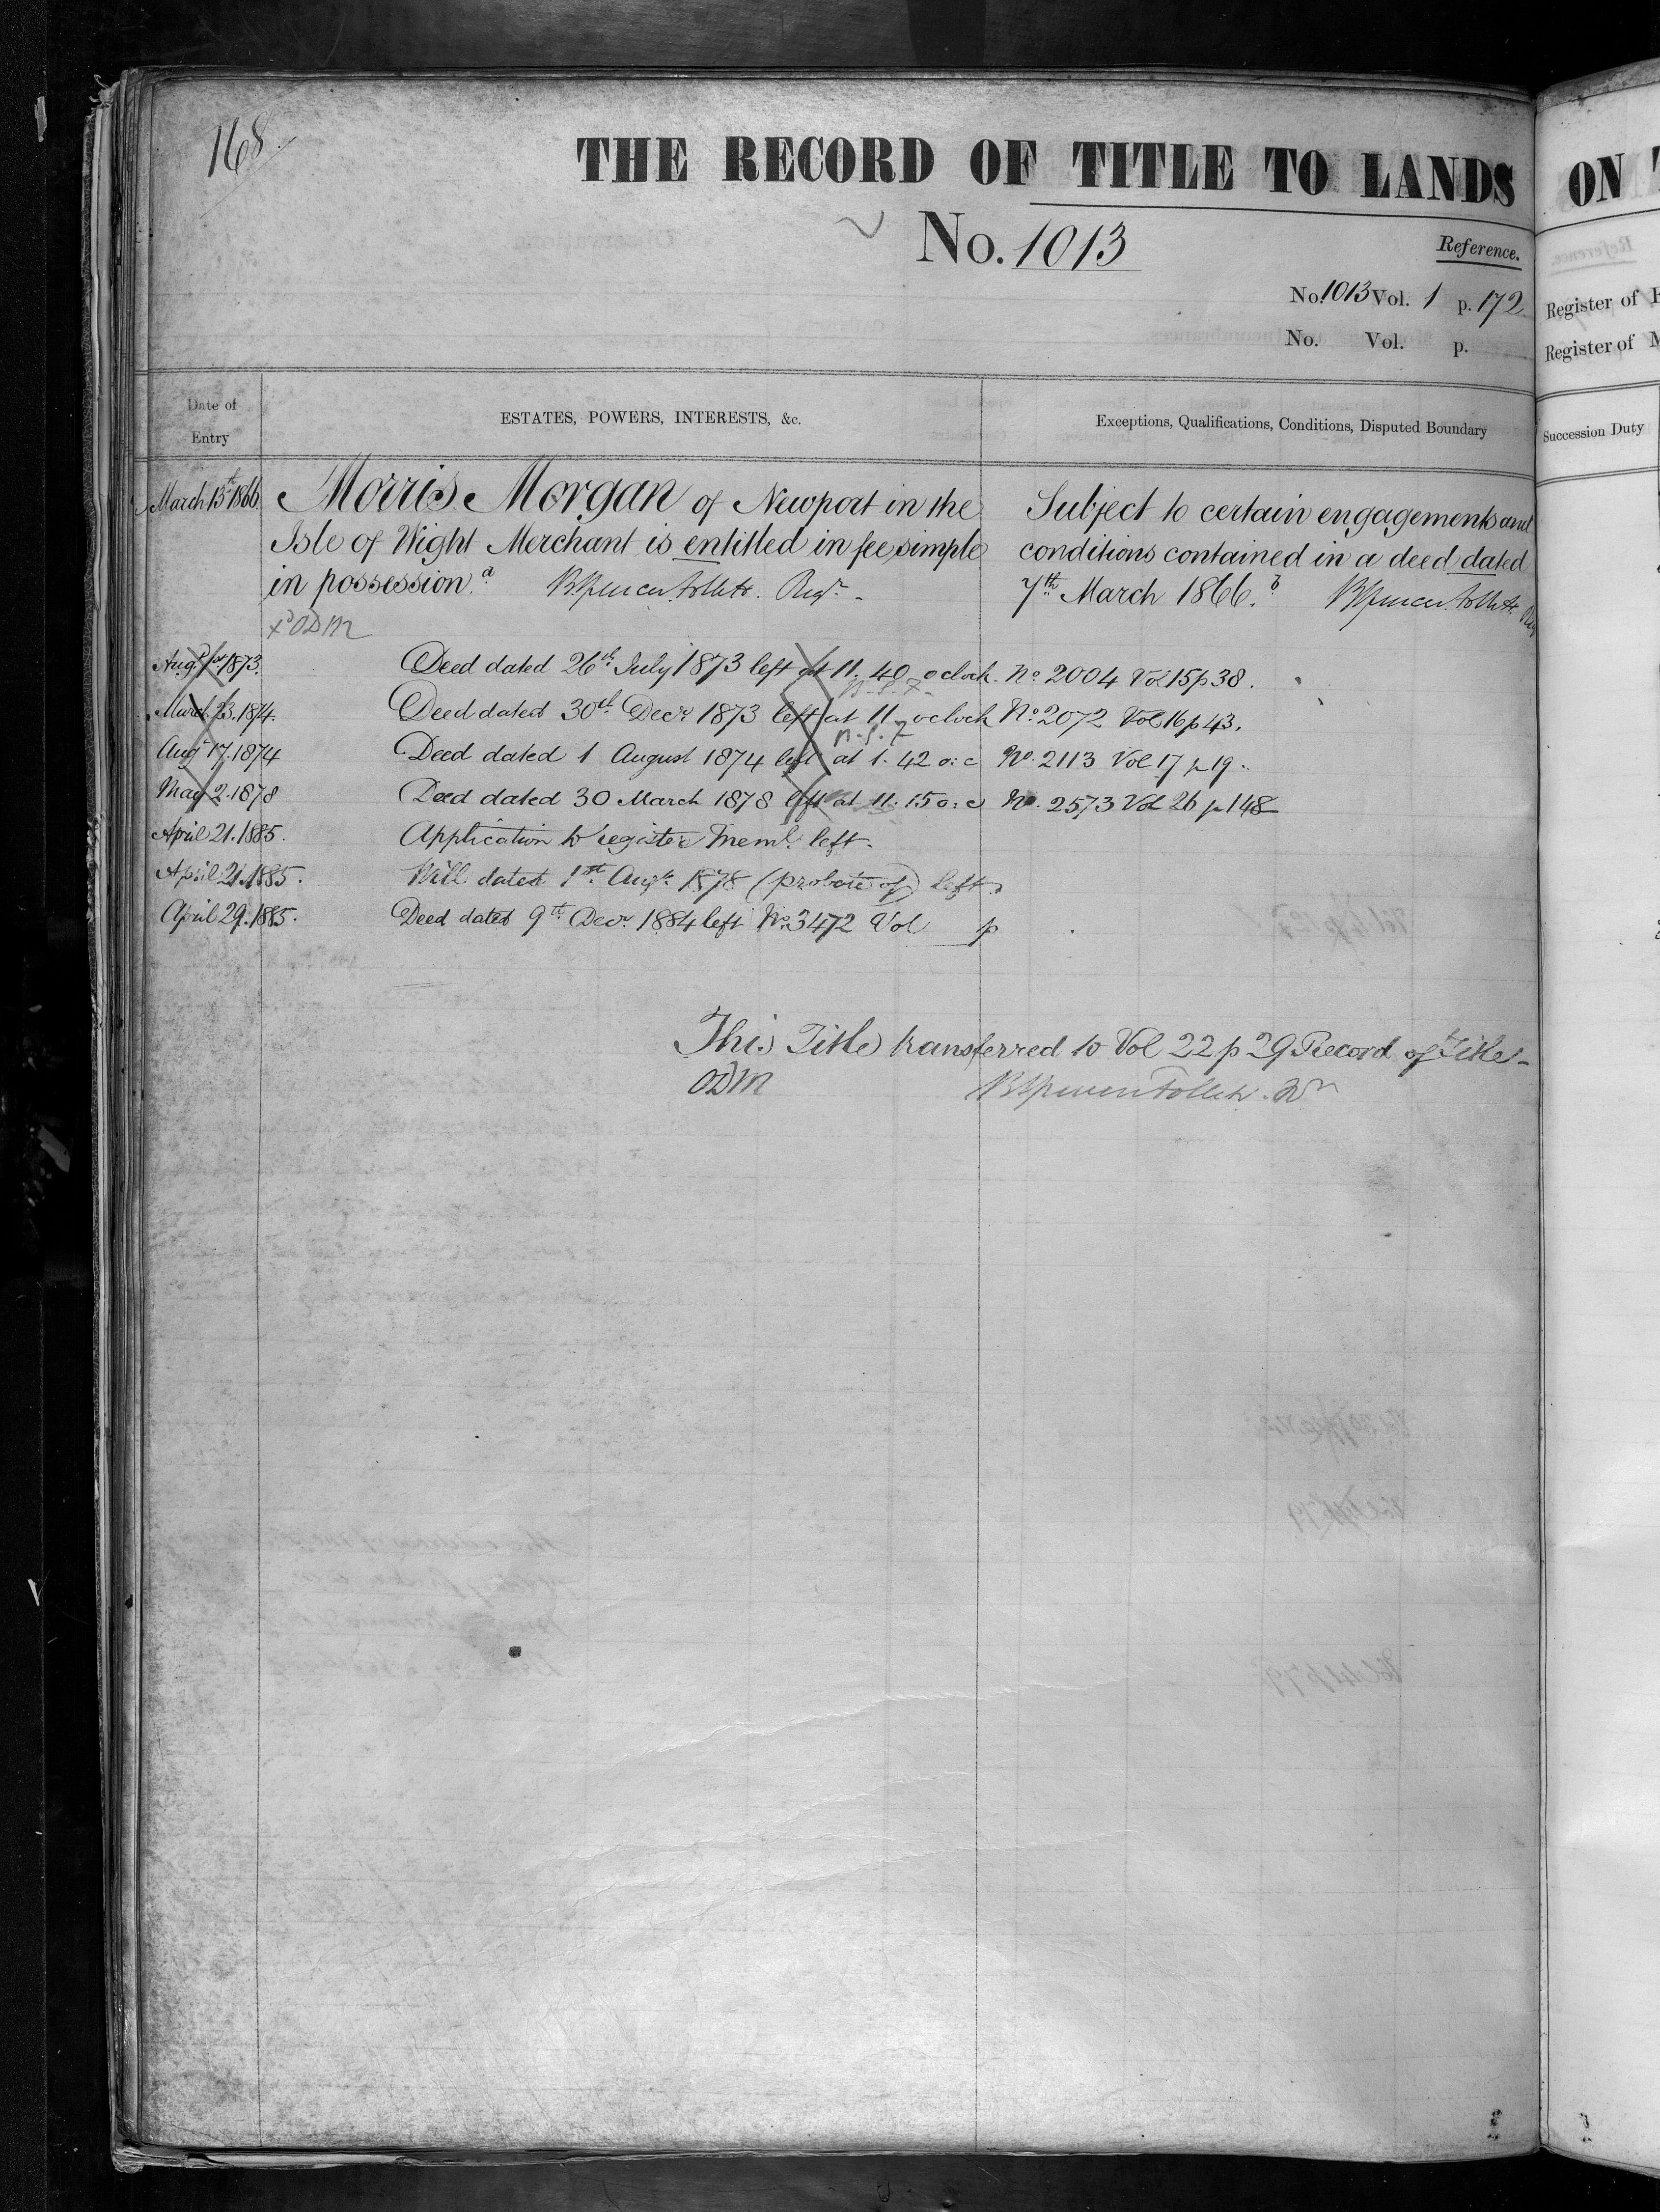 168
THE RECORD OF TITLE TO LANDS
ON
No. 1013
Reference.
No. 1013 Vol. 1 p. 172
No. Vol. p.
Register of
Register of
Date of Entry
ESTATES, POWERS, INTERESTS, &c.
Exceptions, Qualifications, Conditions, Disputed Boundary
Succession Duty
March 13th 1866
Morris Morgan of Newport in the
Isle of Wight Merchant is entitled in fee simple
in possession. a B Spencer Follett. Regr.
Subject to certain engagements and
conditions contained in a deed dated
7th March 1866. b B Spencer Follett
ODM
Augt 1st 1873. Deed dated 26th July 1873 left at 11. 40 oclock. No 2004 Vol 15 p 38.
March 23. 1874. Deed dated 30th Decr 1873 left at 11 oclock No 2072 Vol 16 p 43.
Aug 17. 1874 Deed dated 1 August 1874 left at 1. 42 o:c No. 2113 Vol 17 p 19.
May 2. 1878 Deed dated 30 March 1878 left at 11. 15 o:c No. 2573 Vol 26 p 148
April 21. 1885. Application to register Meml. left.
April 21. 1885. Will dated 1st Augt. 1878 (probate of) left.
April 29. 1885. Deed dated 9th Decr. 1884 left No. 3472 Vol p
This Title transferred to Vol 22 p 29 Record of Title
ODM B Spencer Follett.